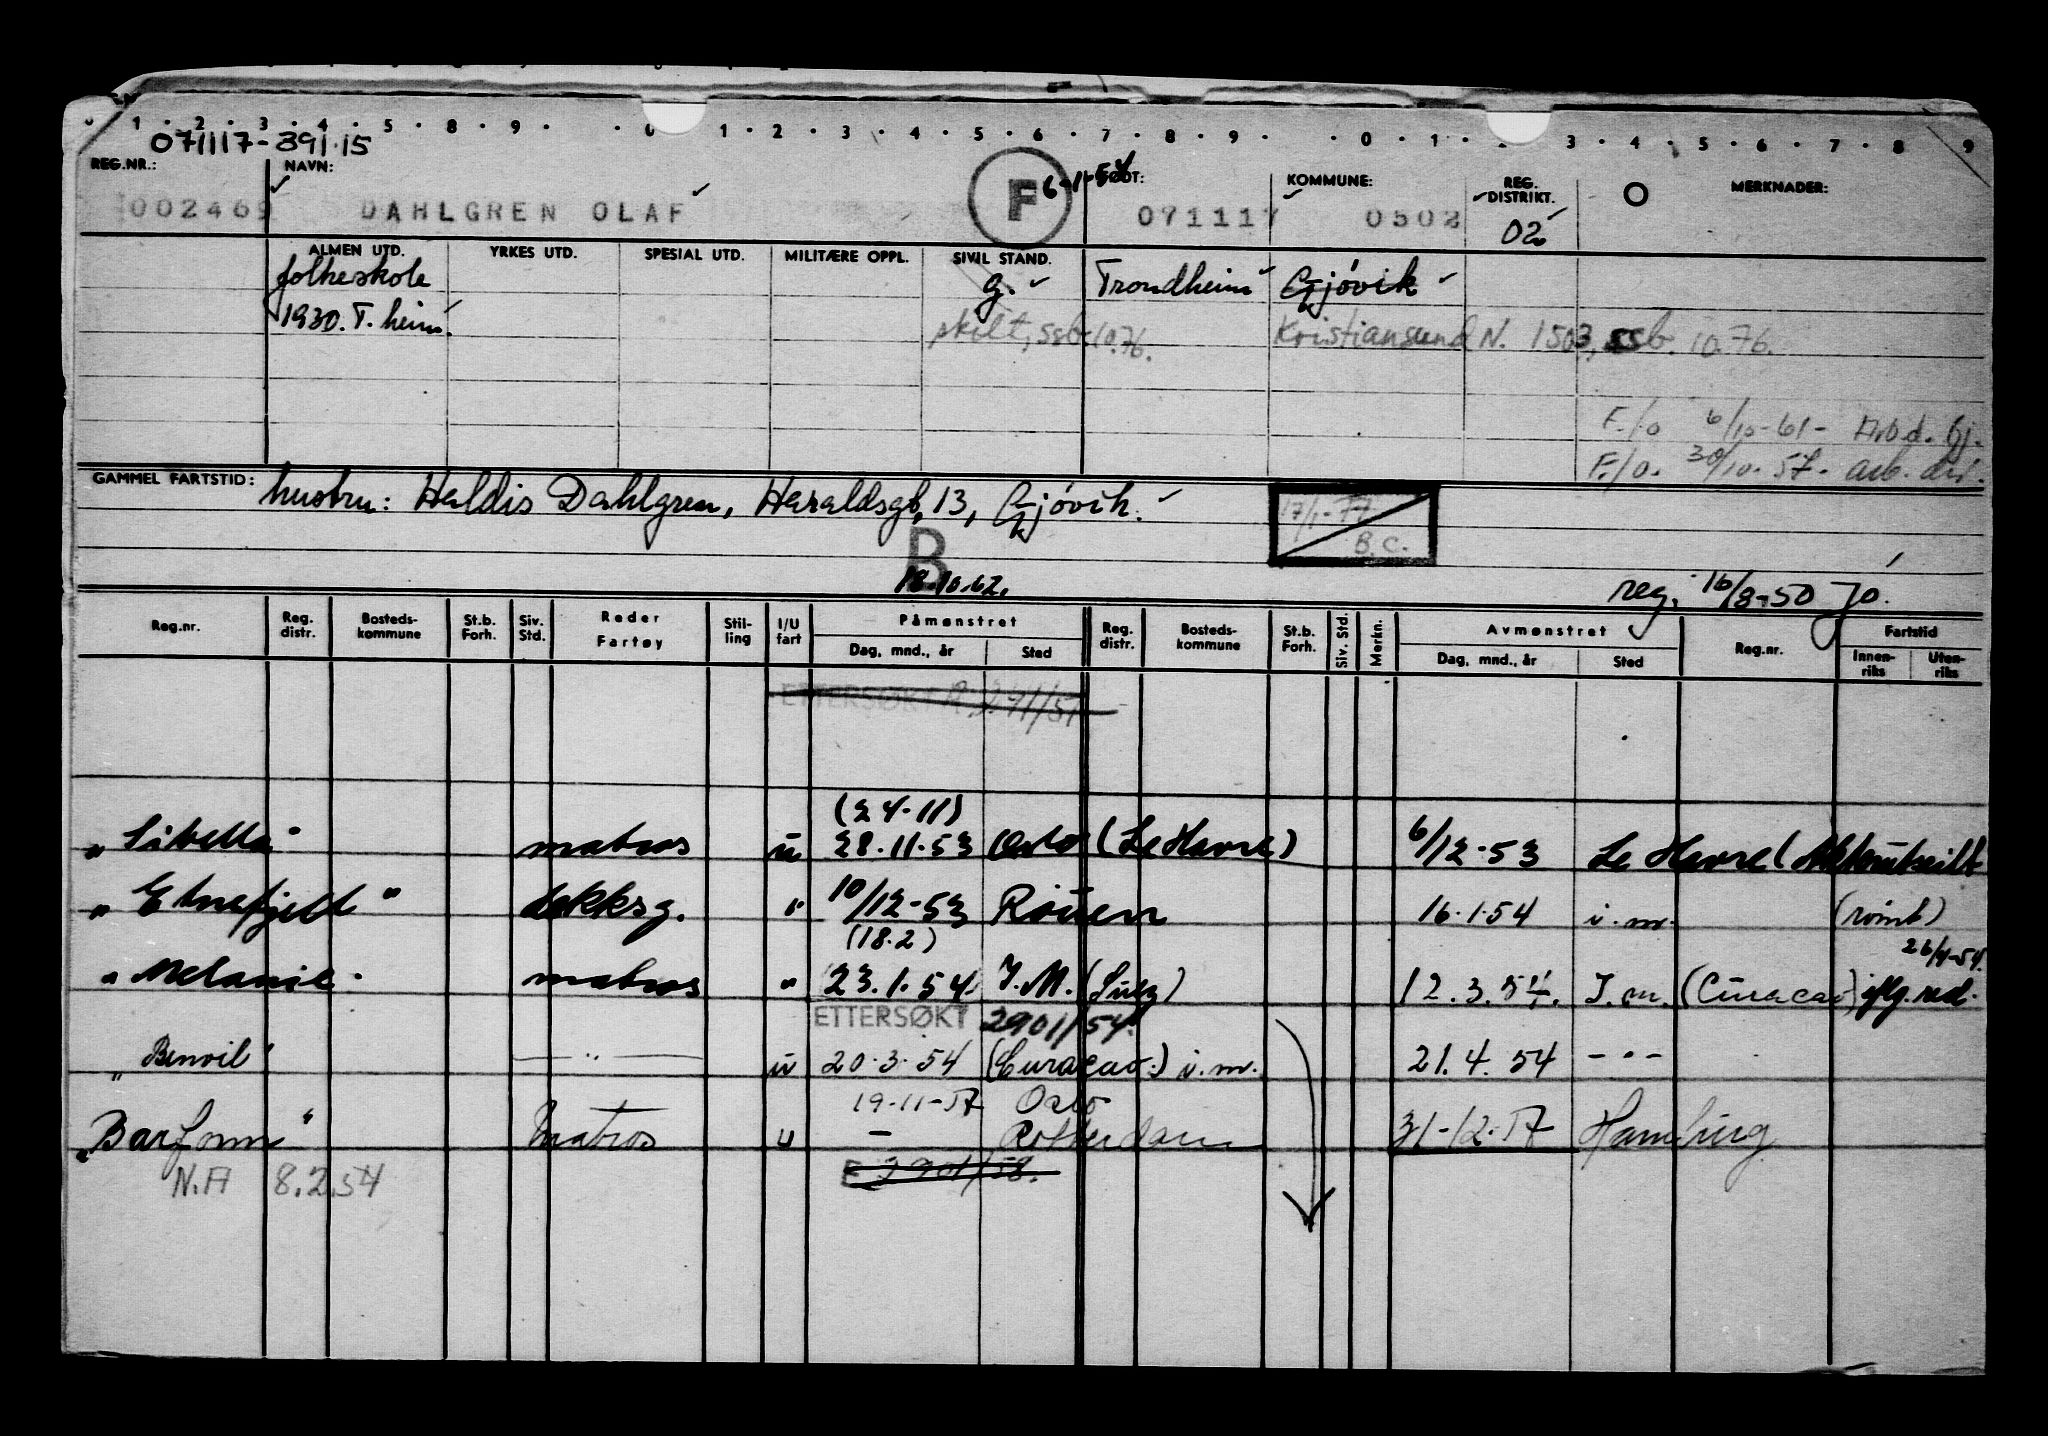 0 · 1 · 2 · 3 · 4 · 5 · 8 · 9 · · 0 1 · 2 · 3 · 4 · 5 · 6 · 7 · 8 · 9 · · 0 · 1 · 3 · 4 · 5 · 6 · 7 · 8 · 9
071117-391.15
REG.NR.: NAVN: FØDT: 6-1-54 KOMMUNE: REG. DISTRIKT. O MERKNADER:
002469 DAHLGREN OLAF F 071117 0502 02
ALMEN UTD. YRKES UTD. SPESIAL UTD. MILITÆRE OPPL. SIVIL STAND.
folkeskole g. Trondheim Gjövik
1930. T. heim. skilt, ssb 10.76. Kristiansund N. 1503, ssb. 10.76.
F./o 6/10-61- Arb.d. Gj.
F./o. 30/10-57- arb. dir.
GAMMEL FARTSTID: hustru: Haldis Dahlgren, Haraldsgt, 13, Gjövik.
17/1-77 B.C.
B
18.10.62.
reg. 16/8-50 Jo.
Reg.nr. Reg. distr. Bosteds- kommune St.b. Forh. Siv. Std. Reder Fartøy Stil- ling I/U fart Påmønstret Dag, mnd., år Sted Reg. distr. Bosteds- kommune St.b. Forh. Siv. Std. Merkn. Avmønstret Dag, mnd., år Sted Reg.nr. Fartstid Innen- riks Uten- riks
ETTERSØKT
(24-11)
"Sibella" matros u 28.11-53 Oslo (Le Havre) 6/12-53 Le Havre (
"Etnefjell" dekksg. " 10/12-53 Rouen 16.1.54 i.m. (römt)
(18.2) 26/4-54.
"Melanie" matros " 23.1.54 I.M. (Suez) 12.3.54. I.m. (Curacao)
ETTERSØKT 2901/54.
"Benvil" — " — u 20.3.54 (Curacao.) i.m. 21.4.54 - " -
19-11-57 Oslo
"Barfonn" Matros u — Rotterdam 31-12-57 Hamburg
N.A 8.2.54 E 2901/58.